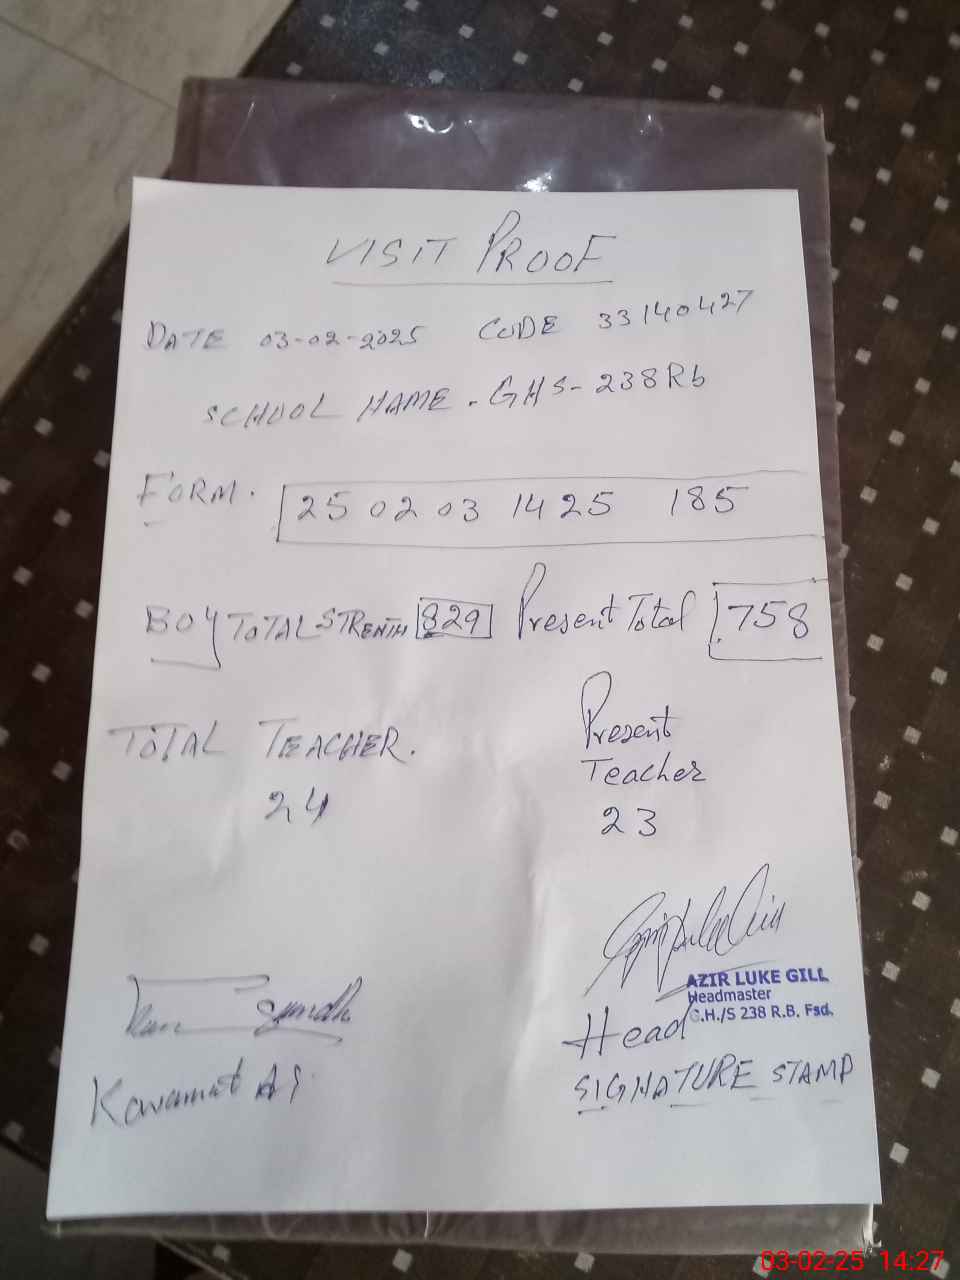 VISIT PROOF
DATE 03-02-2025 CODE 33140427
SCHOOL NAME. GHS-238Rb
FORM. 25 02 03 1425 185
BOY TOTAL STRENTH 829 Present Total 758
TOTAL TEACHER. Present Teacher
24 23
AZIR LUKE GILL
Headmaster
G.H./S 238 R.B. Fsd.
Head
SIGNATURE STAMP
03-02-25 14:27